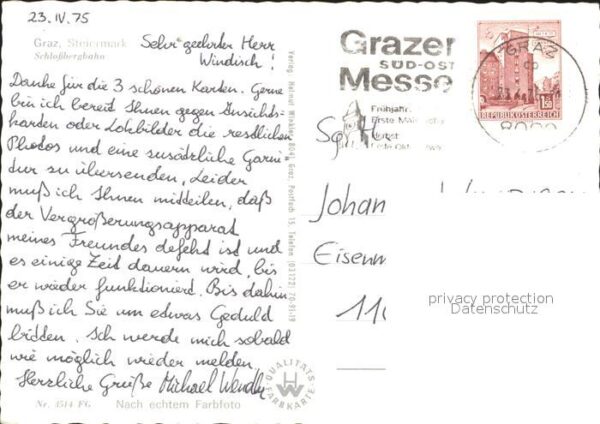 23. IV. 75
Graz, Steiermark
Schloßbergbahn
Sehr geehrter Herr
Windisch!
Danke für die 3 schönen Karten. Gerne
bin ich bereit Ihnen gegen Ansichts-
karten oder Lokbilder die restlichen
Photos und eine zusätzliche Garni
tur zu übersenden. Leider
muß ich Ihnen mitteilen, daß
der Vergrößerungsapparat
meines Freundes defekt ist und
es einige Zeit dauern wird, bis
er wieder funktioniert. Bis dahin
muß ich Sie um etwas Geduld
bitten. Ich werde mich sobald
wie möglich wieder melden.
Herzliche Grüße Michael
Nr. 3514 FG
Nach echtem Farbfoto
QUALITÄTS
FARBKARTE
Verlag Helmut 8041 Graz, Postfach 15, Telefon (03122)
Grazer
SÜD-OST
Messe
Frühjahr:
Erste
Herbst
GRAZ
150
REPUBLIK ÖSTERREICH
Johan
Eisenm
110
privacy protection
Datenschutz